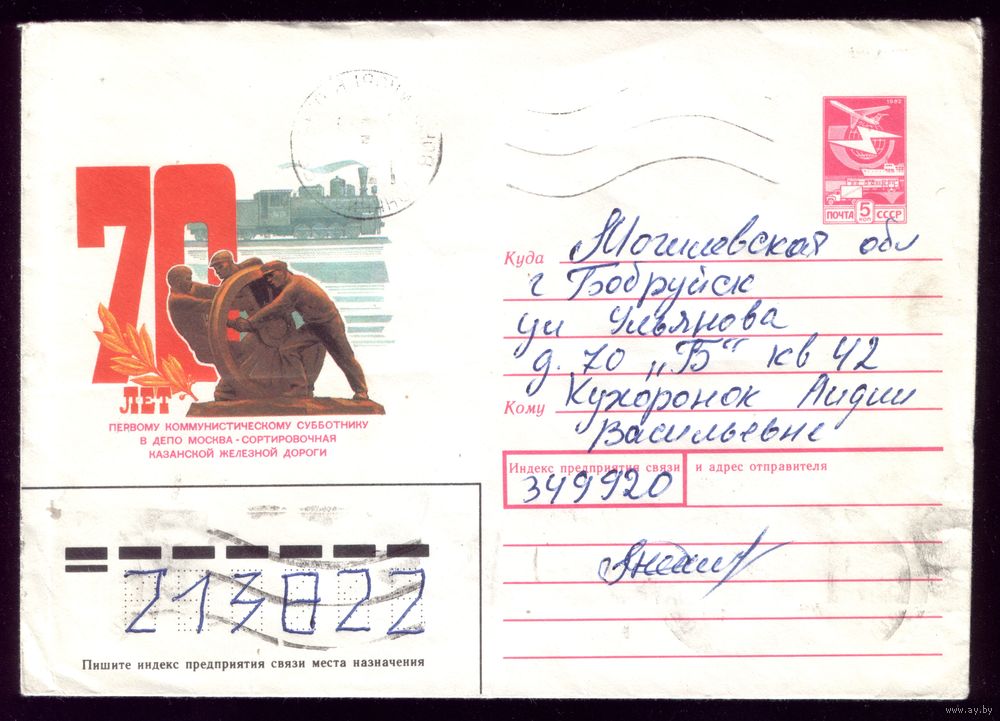 1982
ПОЧТА 5 КОП СССР
70
ЛЕТ
ПЕРВОМУ КОММУНИСТИЧЕСКОМУ СУББОТНИКУ
В ДЕПО МОСКВА-СОРТИРОВОЧНАЯ
КАЗАНСКОЙ ЖЕЛЕЗНОЙ ДОРОГИ
Куда Могилевская обл
г Бобруйск
ул Ульянова
д. 70 „Б“ кв 42
Кому Кухоронок Лидии
Васильевне
Индекс предприятия связи и адрес отправителя
349920
213822
Пишите индекс предприятия связи места назначения
www.ay.by